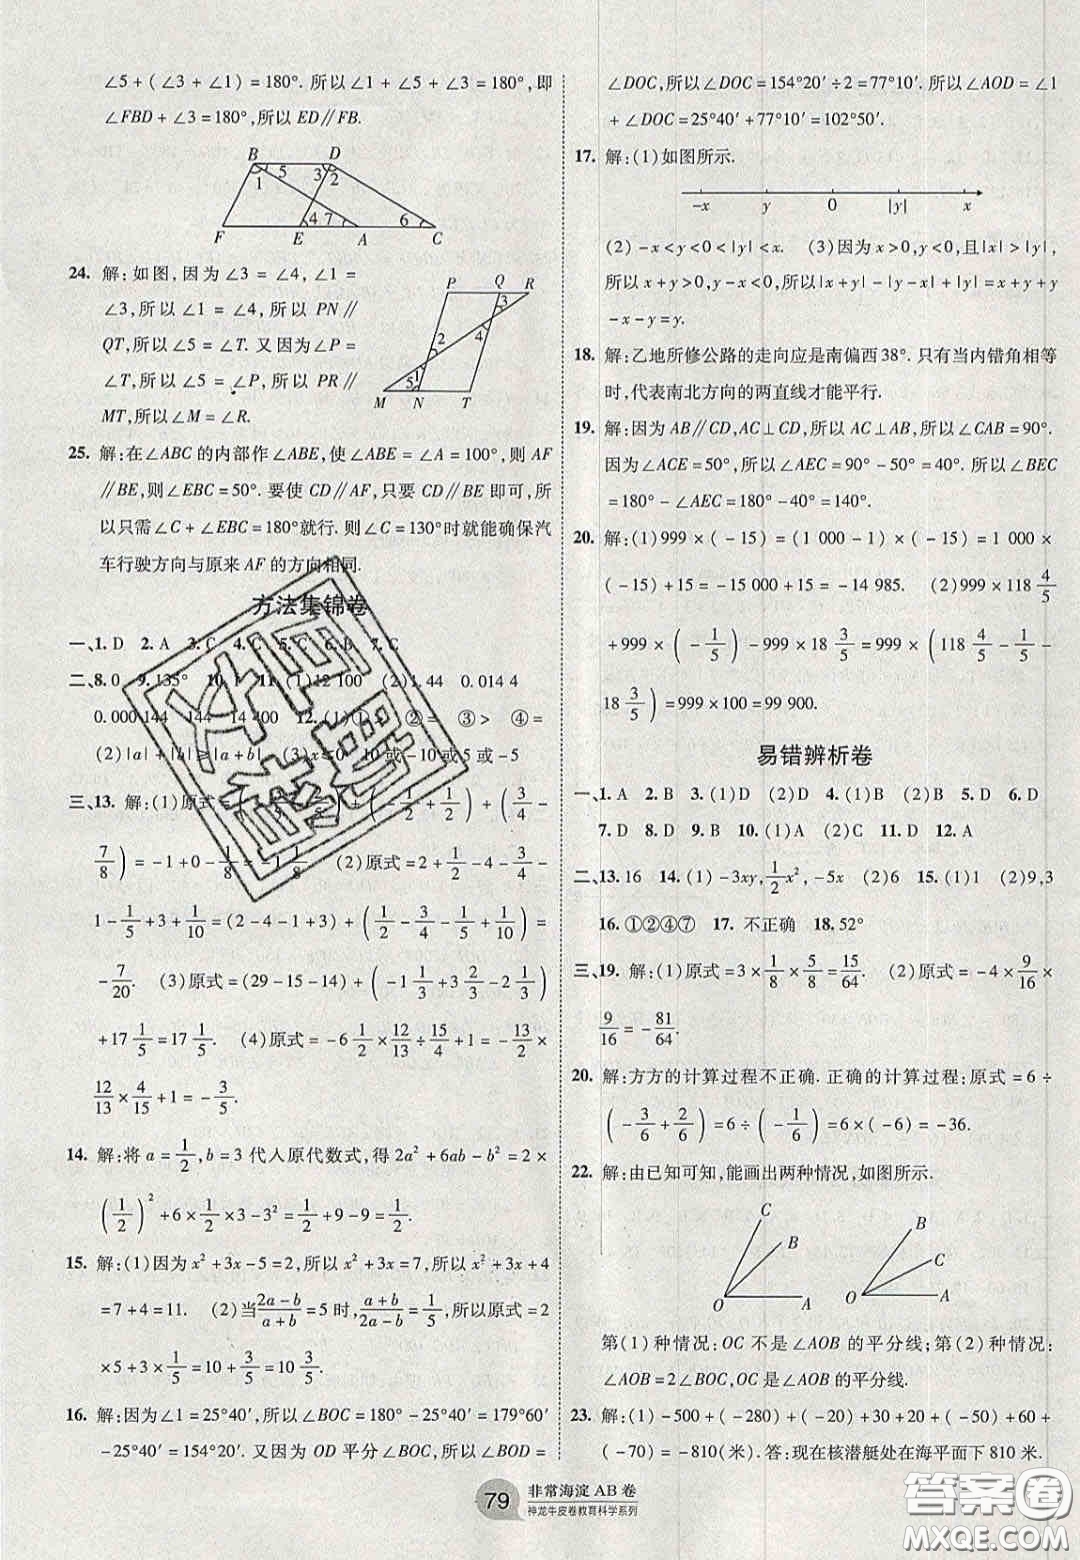 ∠5 + (∠3 + ∠1) = 180°. 所以∠1 + ∠5 + ∠3 = 180°, 即
∠FBD + ∠3 = 180°, 所以 ED∥FB.
B D 5 3 2 1 4 7 6 F E A C
24. 解:如图,因为∠3 = ∠4, ∠1 =
∠3, 所以∠1 = ∠4, 所以 PN∥
QT, 所以∠5 = ∠T. 又因为∠P =
∠T, 所以∠5 = ∠P, 所以 PR∥
MT, 所以∠M = ∠R.
P Q R 3 2 4 5 1 M N T
25. 解:在∠ABC 的内部作∠ABE, 使∠ABE = ∠A = 100°, 则 AF
∥BE, 则∠EBC = 50°. 要使 CD∥AF, 只要 CD∥BE 即可, 所
以只需∠C + ∠EBC = 180°就行. 则∠C = 130°时就能确保汽
车行驶方向与原来 AF 的方向相同.
方法集锦卷
一、1. D 2. A 3. C 4. C 5. C 6. D 7. C
二、8. 0 9. 135° 10. 1 11. (1)12 100 (2)1.44 0.014 4
0.000 144 144 14 400 12. (1)① ② = ③ > ④ =
(2)|a| + |b| ≥ |a + b| (3)x≤0 10 或 -10 或 5 或 -5
三、13. 解:(1)原式 = (-1/4 + 1/4) + (3/4 -
7/8) = -1 + 0 - 1/8 = -1 1/8 (2)原式 = 2 + 1/2 - 4 - 3/4 -
1 - 1/5 + 3 + 1/10 = (2 - 4 - 1 + 3) + (1/2 - 3/4 - 1/5 + 1/10) =
-7/20. (3)原式 = (29 - 15 - 14) + (-1 1/3 + 3 2/3 - 2 1/3)
+ 17 1/5 = 17 1/5. (4)原式 = -6 1/2 × 12/13 ÷ 15/4 + 1 = -13/2 ×
12/13 × 4/15 + 1 = -3/5.
14. 解:将 a = 1/2, b = 3 代入原代数式, 得 2a² + 6ab - b² = 2 ×
(1/2)² + 6 × 1/2 × 3 - 3² = 1/2 + 9 - 9 = 1/2.
15. 解:(1)因为 x² + 3x - 5 = 2, 所以 x² + 3x = 7, 所以 x² + 3x + 4
= 7 + 4 = 11. (2)当 (2a-b)/(a+b) = 5 时, (a+b)/(2a-b) = 1/5, 所以原式 = 2
× 5 + 3 × 1/5 = 10 + 3/5 = 10 3/5.
16. 解:因为∠1 = 25°40′, 所以∠BOC = 180° - 25°40′ = 179°60′
- 25°40′ = 154°20′. 又因为 OD 平分∠BOC, 所以∠BOD =
∠DOC, 所以∠DOC = 154°20′ ÷ 2 = 77°10′. 所以∠AOD = ∠1
+ ∠DOC = 25°40′ + 77°10′ = 102°50′.
17. 解:(1)如图所示.
-x y 0 |y| x
(2) -x < y < 0 < |y| < x. (3)因为 x > 0, y < 0, 且|x| > |y|,
所以 x + y > 0, y - x < 0, 所以|x + y| - |y - x| + |y| = x + y + y
- x - y = y.
18. 解:乙地所修公路的走向应是南偏西 38°. 只有当内错角相等
时, 代表南北方向的两直线才能平行.
19. 解:因为 AB∥CD, AC⊥CD, 所以 AC⊥AB, 所以∠CAB = 90°.
因为∠ACE = 50°, 所以∠AEC = 90° - 50° = 40°. 所以∠BEC
= 180° - ∠AEC = 180° - 40° = 140°.
20. 解:(1)999 × (-15) = (1 000 - 1) × (-15) = 1 000 ×
(-15) + 15 = -15 000 + 15 = -14 985. (2)999 × 118 4/5
+ 999 × (-1/5) - 999 × 18 3/5 = 999 × (118 4/5 - 1/5 -
18 3/5) = 999 × 100 = 99 900.
易错辨析卷
一、1. A 2. B 3. (1)D (2)D 4. (1)B (2)B 5. D 6. D
7. D 8. D 9. B 10. (1)A (2)C 11. D 12. A
二、13. 16 14. (1) -3xy, 1/2x², -5x (2)6 15. (1)1 (2)9,3
16. ①②④⑦ 17. 不正确 18. 52°
三、19. 解:(1)原式 = 3 × 1/8 × 5/8 = 15/64. (2)原式 = -4 × 9/16 ×
9/16 = -81/64.
20. 解:方方的计算过程不正确. 正确的计算过程:原式 = 6 ÷
(-3/6 + 2/6) = 6 ÷ (-1/6) = 6 × (-6) = -36.
22. 解:由已知可知, 能画出两种情况, 如图所示.
C B O A B C O A
第(1)种情况:OC 不是∠AOB 的平分线;第(2)种情况:
∠AOB = 2∠BOC, OC 是∠AOB 的平分线.
23. 解:(1) -500 + (-250) + (-20) + 30 + 20 + (-50) + 60 +
(-70) = -810(米). 答:现在核潜艇处在海平面下 810 米.
79 非常海淀 AB 卷
神龙牛皮卷教育科学系列
答案卷
MXQE.COM